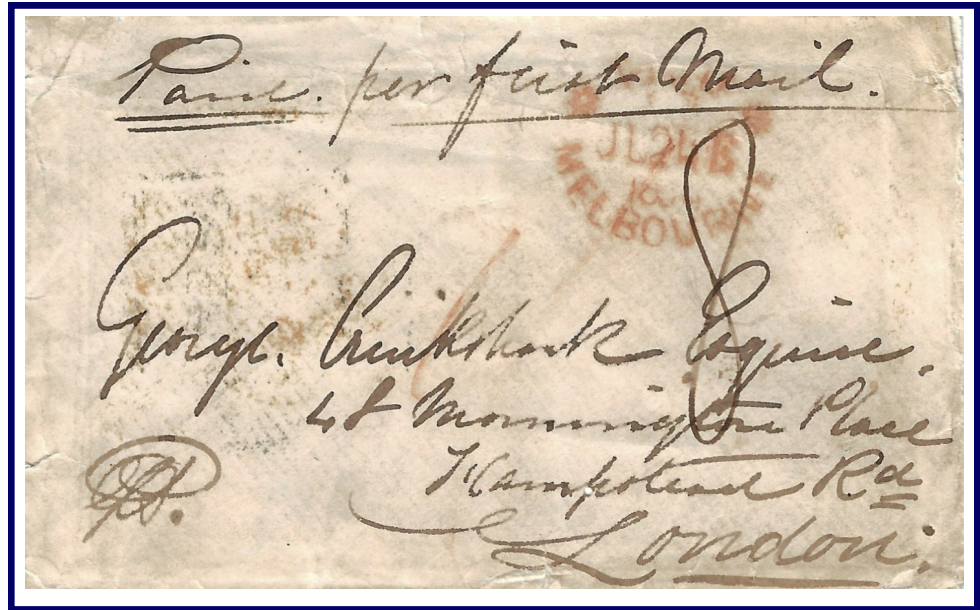 Paid. per first Mail.
JL 21
MELBOURNE
8
George. Cruikshank Esquire.
48 Mornington Place
Hampstead Rd
London.